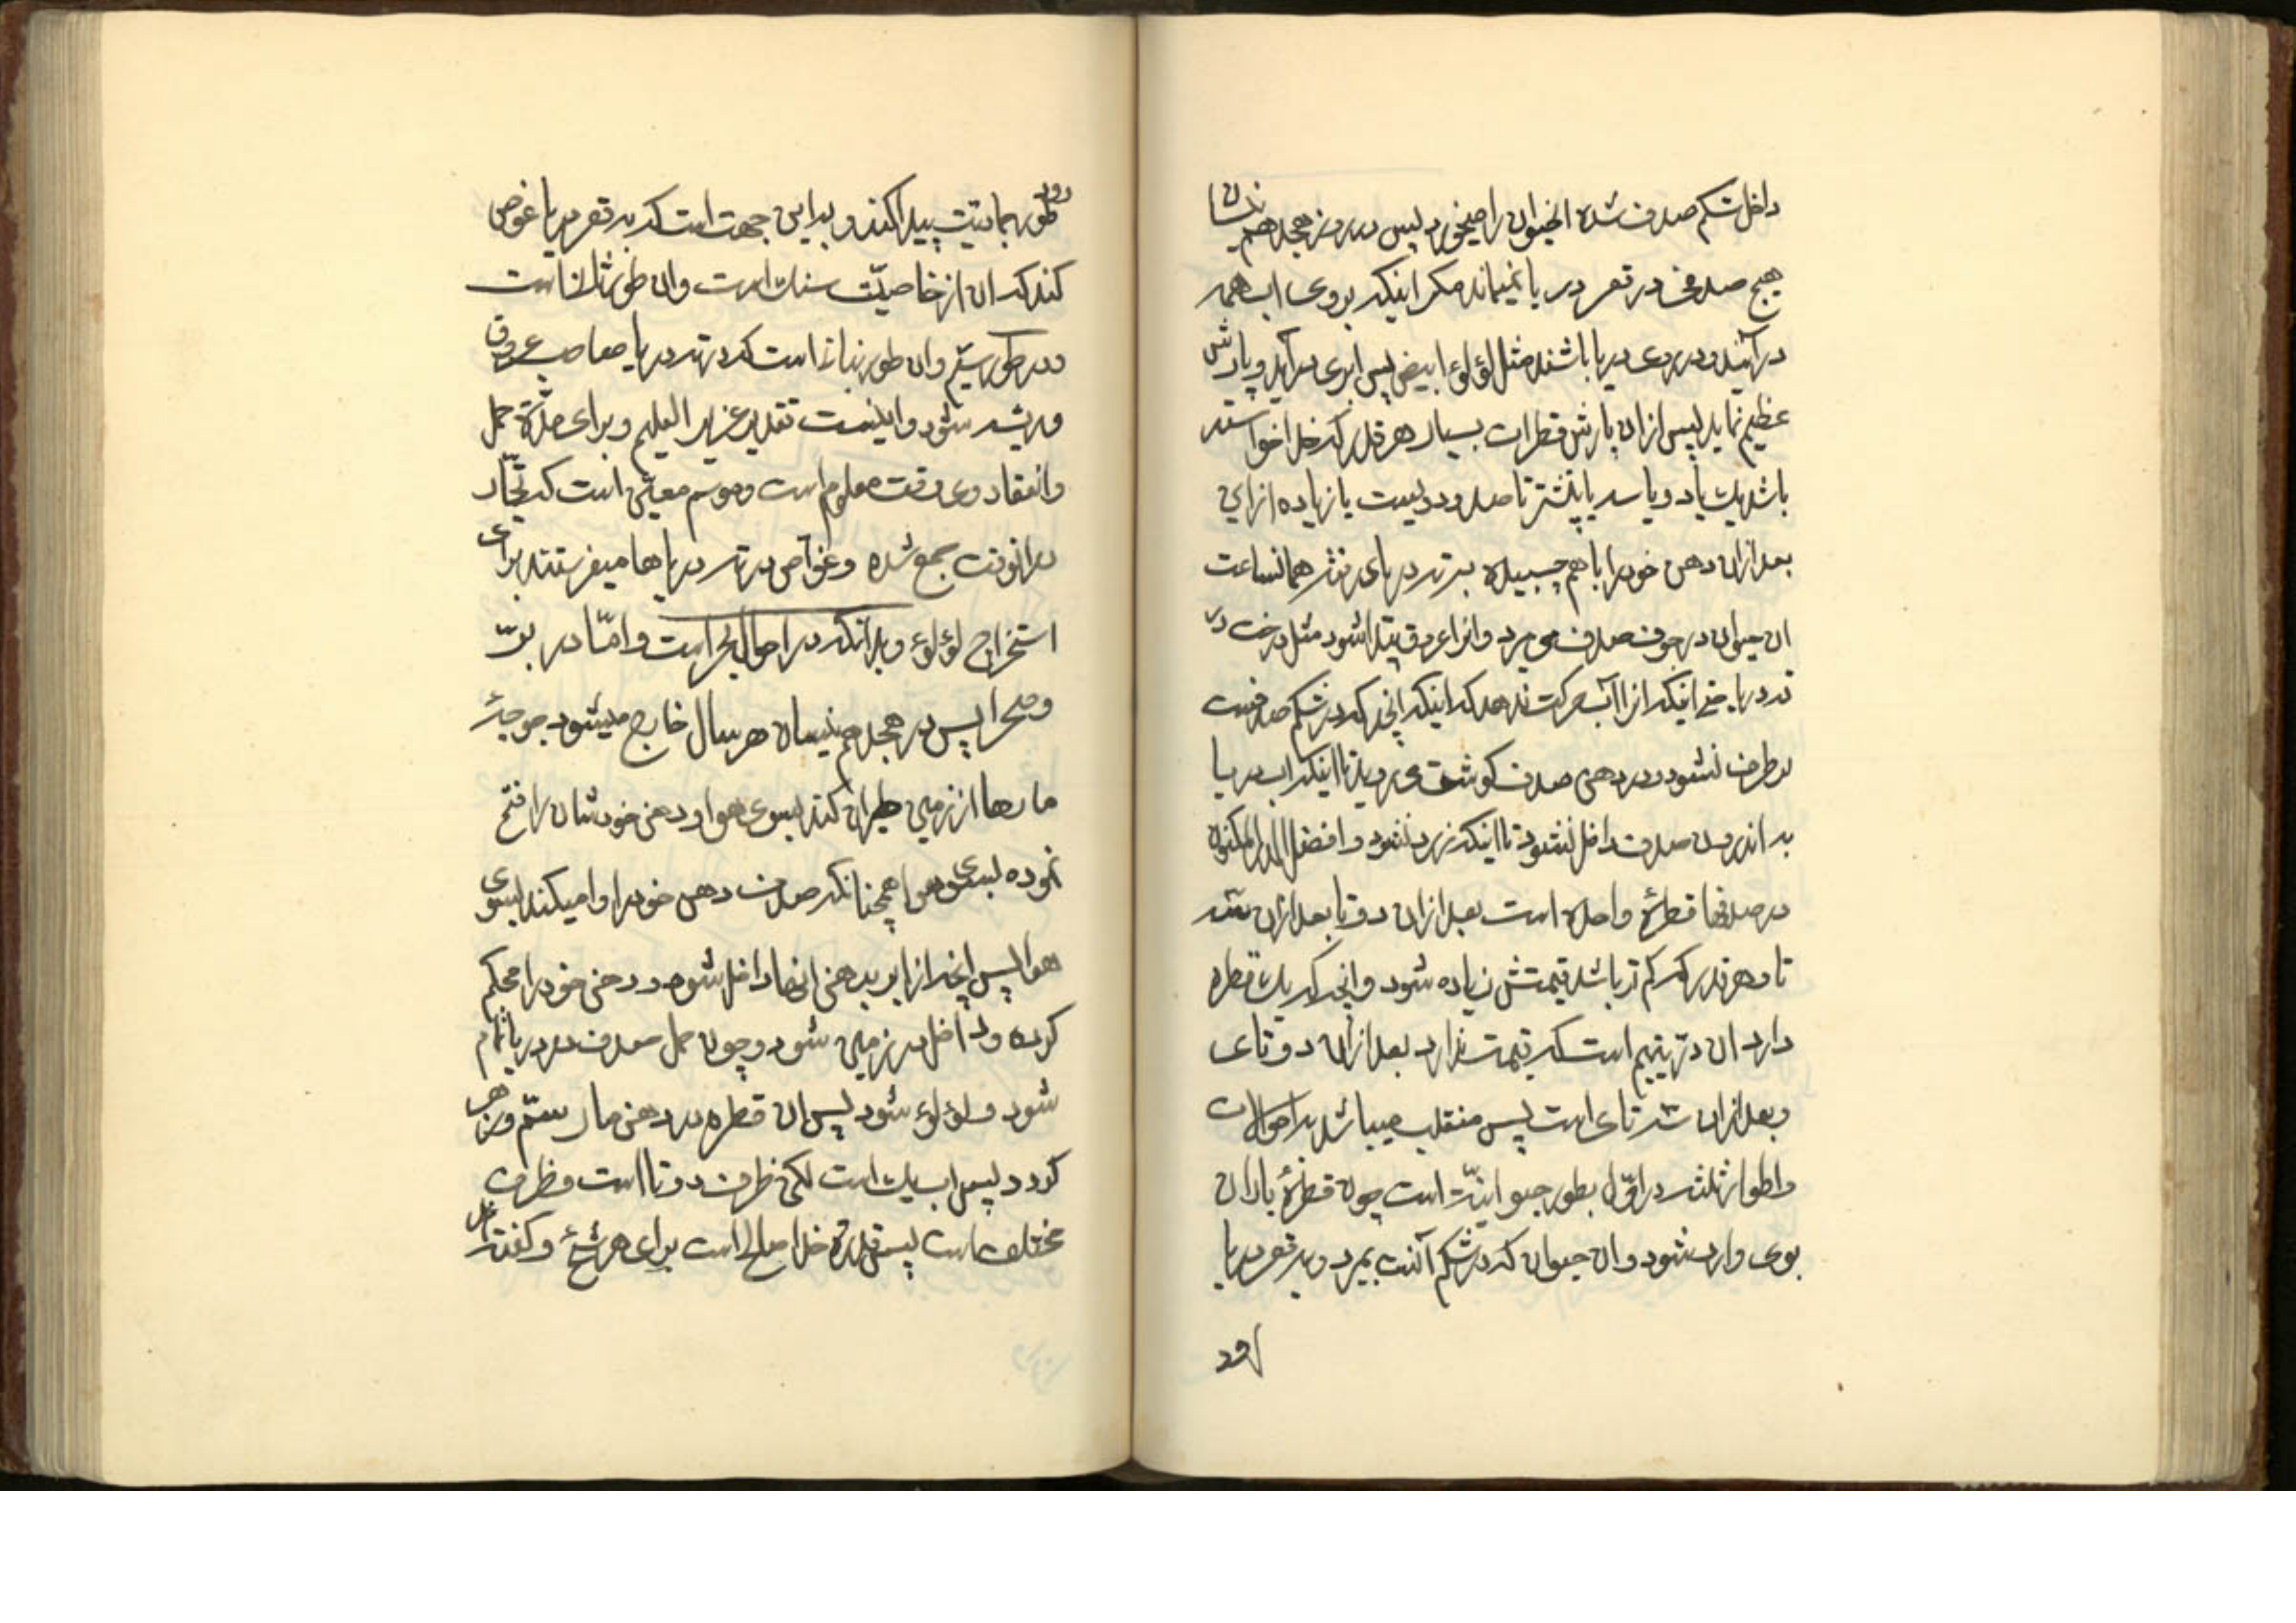 داخل شکم صدف شده انحیوان را میخورد پس در روز هجدهم نیسان
هیچ صدفی در قعر دریا نمیماند مکر اینکه بروی اب همه
در آیند و در روی دریا باشند مثل لؤلؤ ابیض پس ابری در آید و بارش
عظیم نماید پس از ان بارش قطرات بسیار هر قدر که خدا خواسته
باشد یك یا دو یا سه یا بیشتر تا صد و دویست یا زیاده از این
بعد از ان دهن خود را با هم چسبیده به ته دریا همانساعت
ان حیوان در جوف صدف می میرد و انرا عروق پیدا شود مثل درخت در
ته دریا اینکه انرا آب حرکت ندهد که اینکه انچه که در شکم صدفست
بر طرف نشود و در دهن صدف کوشت می روید تا اینکه اب دریا
به اندرون صدف داخل نشود تا اینکه زرد نشود و افضل الدر المکنون
در صدفها قطرهٔ واحده است بعد از ان دو تا بعد از ان سه
تا و هر قدر که کم تر باشد قیمتش زیاده شود و انچه که یك قطره
دارد ان درّ یتیم است که قیمت ندارد بعد از ان دو تای
و بعد از ان سه تای است پس منقلب میباشد به احوالات
و اطوار ثلثه در اوّل بطور حیوانیّت است چون قطرهٔ باران
بوی وارد شود و ان حیوان که در شکم آنست بمیرد و به قعر دریا
رود
طور جمادیّت پیدا کند و به این جهت است که به قعر دریا غوص
کند که ان از خاصیّت سنك است و ان طور ثالث است
و در طور سیّم و ان طور نباتی است که در ته دریا صاحب عروق
و ریشه شود و اینست تقدیر عزیز العلیم و برای مدّة حمل
و انعقاد وی وقت معلوم است و موسم معیّن است که تجّار
در انوقت جمع شده و غوّاص در ته دریاها میفرستند برای
استخراج لؤلؤ و بدانکه در احوال بحر است و امّا در برّ
و صحرا پس در هجدهم نیسان هر سال خارج میشود جوجهٔ
مارها از زمین طیران کند بسوی هوا و دهن خودشان را فتح
نموده بسوی هوا همچنانکه صدف دهن خود را وا میکند بسوی
هوا پس انچه از ابر به دهن انها داخل شود و دهن خود را محکم
کرده و داخل در زمین شود و چون حمل صدف در دریا تمام
شود و لؤلؤ شود پس ان قطره در دهن مار سمّ و زهر
کردد پس اب یك است لکن ظرف دو تا است و ظرف
مختلف است پس قدرة خدا صالح است برای هر شیء و کفته